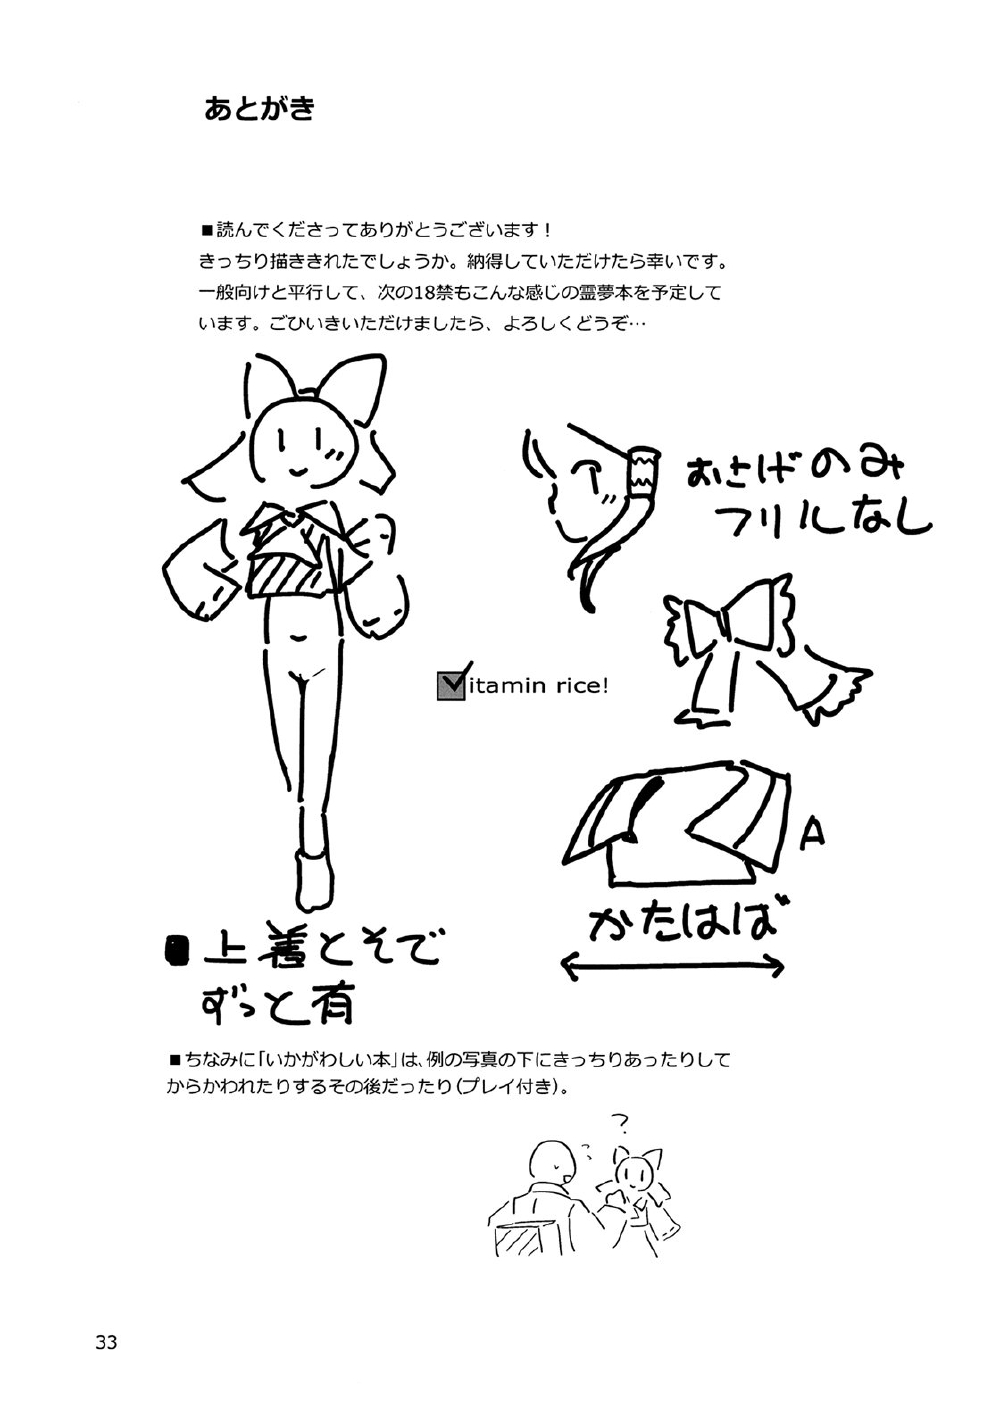 あとがき
■読んでくださってありがとうございます！
きっちり描ききれたでしょうか。納得していただけたら幸いです。
一般向けと平行して、次の18禁もこんな感じの霊夢本を予定して
います。ごひいきいただけましたら、よろしくどうぞ…
おさげのみ
フリルなし
Vitamin rice!
A
かたはば
■上着とそで
ずっと有
■ちなみに「いかがわしい本」は、例の写真の下にきっちりあったりして
からかわれたりするその後だったり（プレイ付き）。
?
33